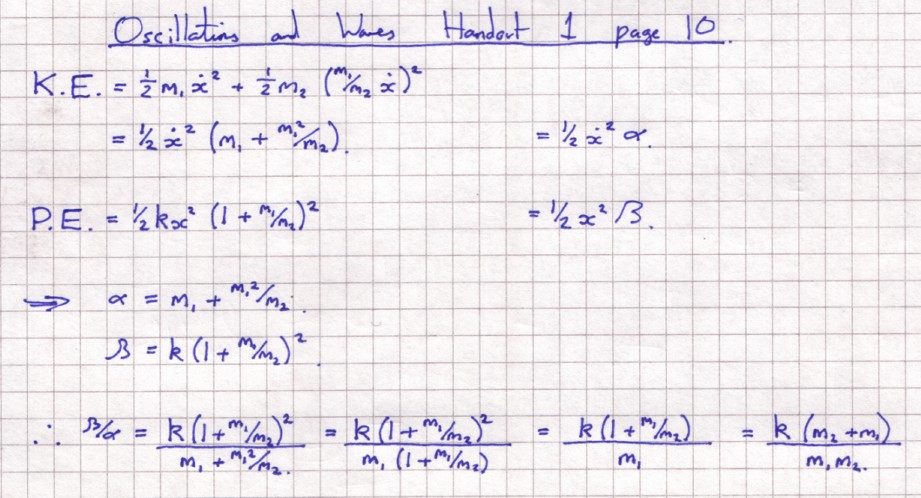 Oscillations and Waves Handout 1 page 10.
K.E. = ½ m₁ ẋ² + ½ m₂ (m₁/m₂ ẋ)²
= ½ ẋ² (m₁ + m₁²/m₂). = ½ ẋ² α.
P.E. = ½ kx² (1 + m₁/m₂)² = ½ x² β.
⇒ α = m₁ + m₁²/m₂.
β = k (1 + m₁/m₂)².
∴ β/α = k(1 + m₁/m₂)² / (m₁ + m₁²/m₂.) = k(1 + m₁/m₂)² / (m₁ (1 + m₁/m₂)) = k(1 + m₁/m₂) / m₁ = k (m₂ + m₁) / (m₁ m₂.)